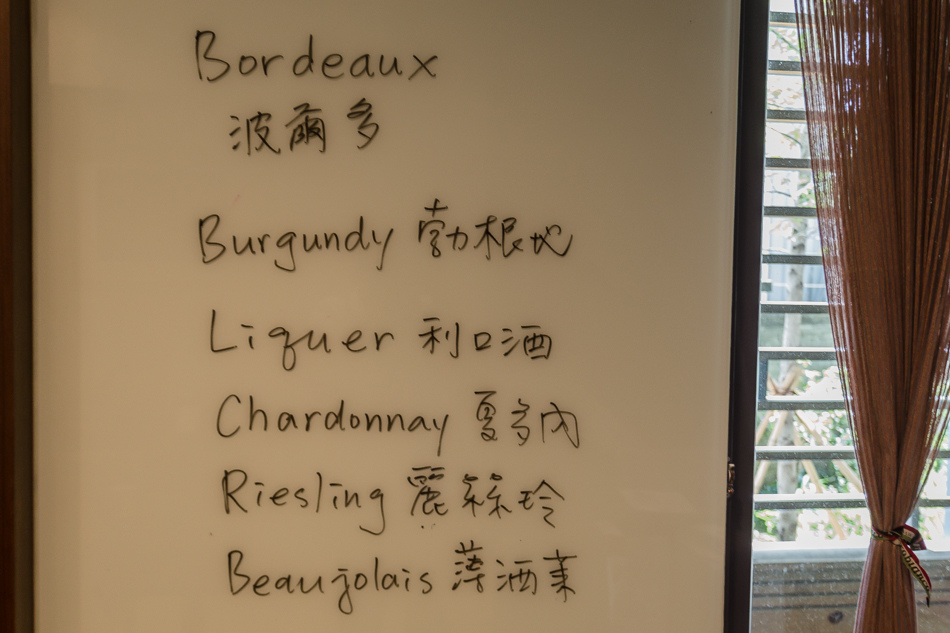 Bordeaux
波爾多
Burgundy 勃根地
Liquer 利口酒
Chardonnay 夏多內
Riesling 麗絲玲
Beaujolais 薄酒萊